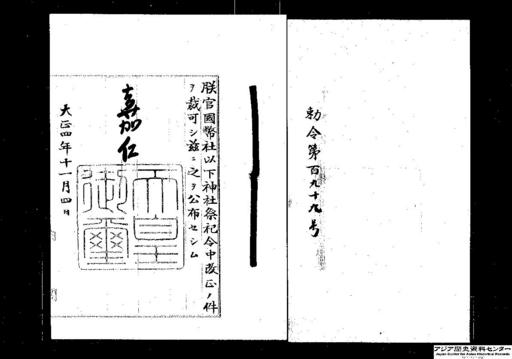 勅令第百九十九号
朕官國幣社以下神社祭祀令中改正ノ件
ヲ裁可シ茲ニ之ヲ公布セシム
嘉仁
天皇
御璽
大正四年十一月四日
アジア歴史資料センター
Japan Center for Asian Historical Records